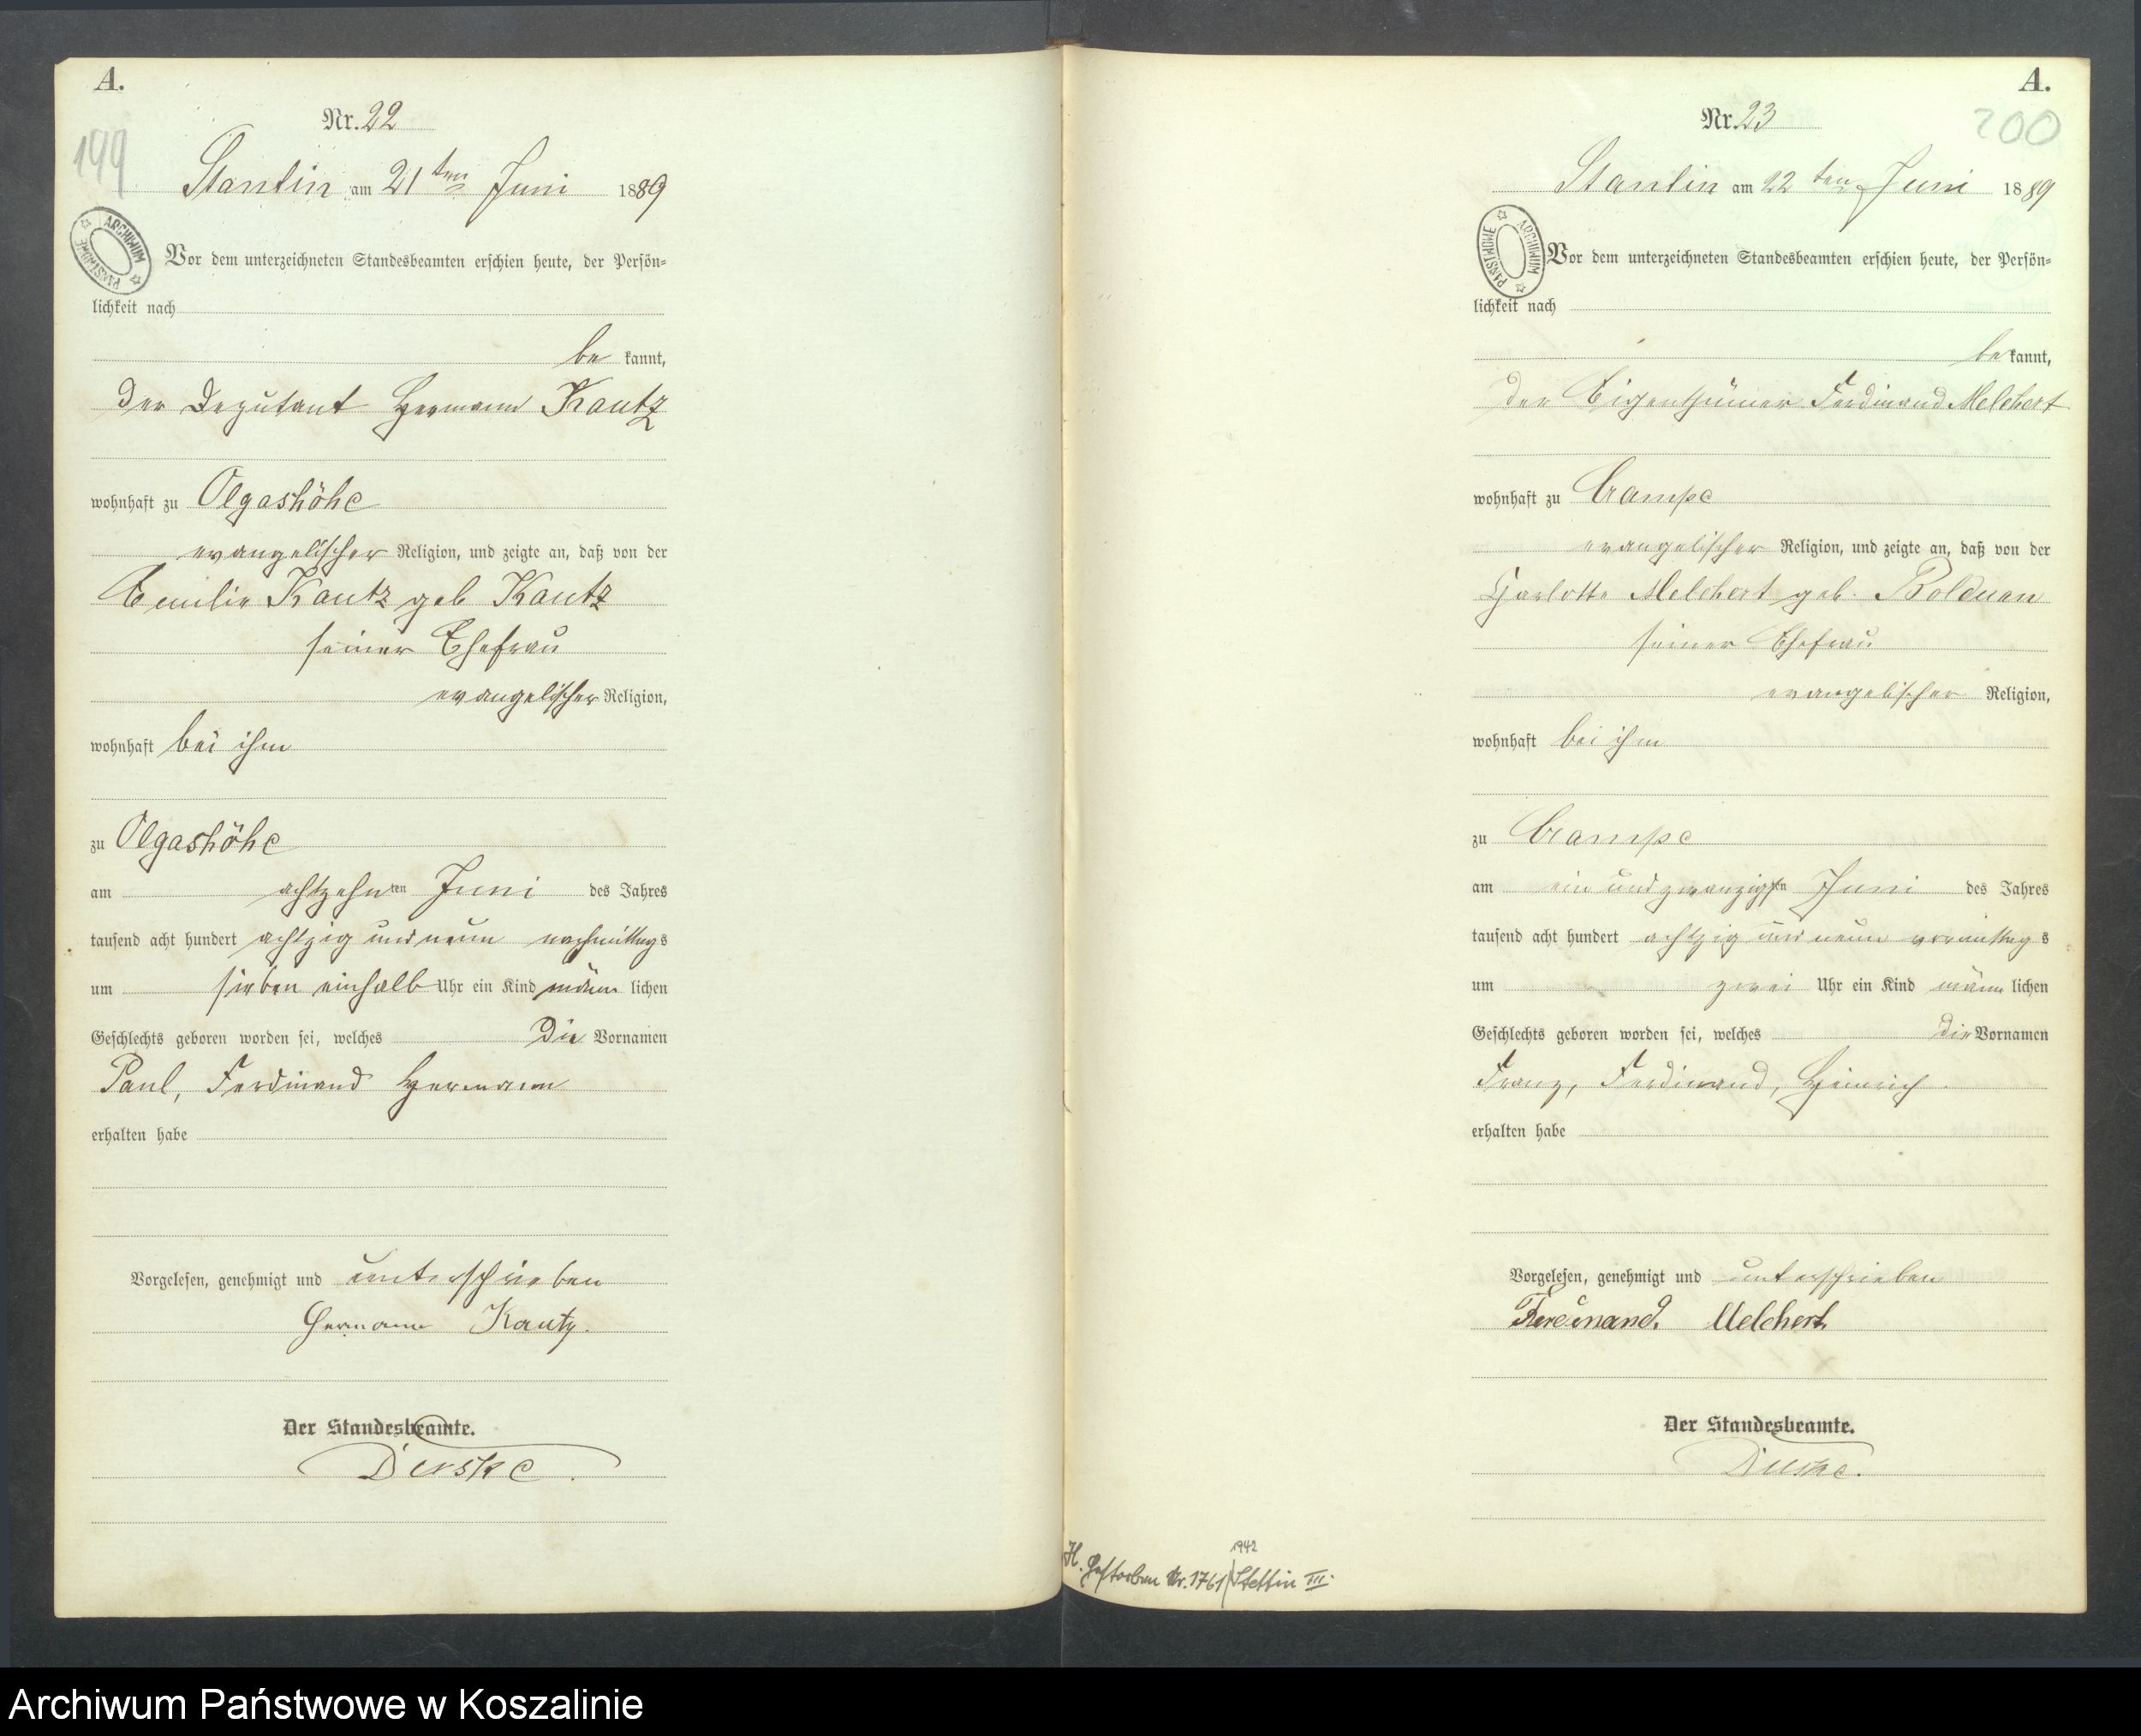 A.
Nr. 22
199
Stantin am 21ten Juni 1889
ARCHIWUM PAŃSTWOWE
Vor dem unterzeichneten Standesbeamten erschien heute, der Persön-
lichkeit nach
be kannt,
der Deputant Hermann Kautz
wohnhaft zu Olgashöhe
evangelischer Religion, und zeigte an, daß von der
Emilie Kautz geb Kautz
seiner Ehefrau
evangelischer Religion,
wohnhaft bei ihm
zu Olgashöhe
am achtzehnten Juni des Jahres
tausend acht hundert achtzig und neun nachmittags
um sieben einhalb Uhr ein Kind männ lichen
Geschlechts geboren worden sei, welches die Vornamen
Paul, Ferdinand Hermann
erhalten habe
Vorgelesen, genehmigt und unterschrieben
Hermann Kautz.
Der Standesbeamte.
A.
Nr. 23
200
Stantin am 22ten Juni 1889
ARCHIWUM PAŃSTWOWE
Vor dem unterzeichneten Standesbeamten erschien heute, der Persön-
lichkeit nach
be kannt,
der Eigenthümer Ferdinand Melchert
wohnhaft zu Campe
evangelischer Religion, und zeigte an, daß von der
Charlotte Melchert geb. Bolduan
seiner Ehefrau
evangelischer Religion,
wohnhaft bei ihm
zu Campe
am ein und zwanzigsten Juni des Jahres
tausend acht hundert achtzig und neun vormittags
um zwei Uhr ein Kind männ lichen
Geschlechts geboren worden sei, welches die Vornamen
Franz, Ferdinand, Heinrich.
erhalten habe
Vorgelesen, genehmigt und unterschrieben
Ferdinand. Melchert
Der Standesbeamte.
H. Gestorben Nr. 1761/1942 Stettin III.
Archiwum Państwowe w Koszalinie